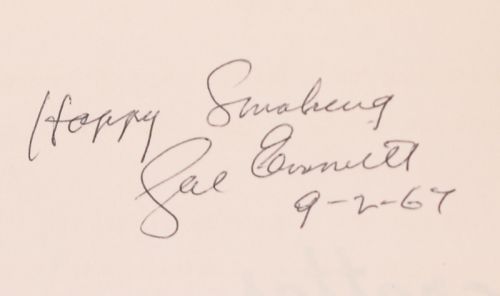 Happy Smoking
Sal
9-2-67